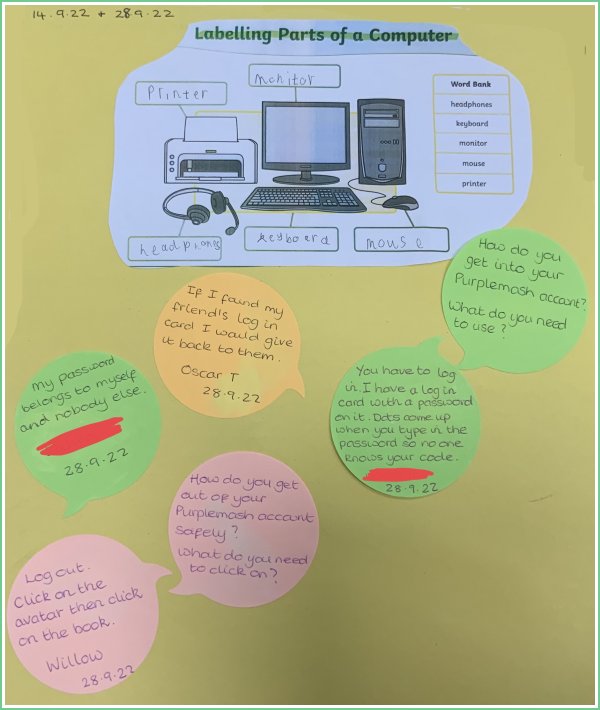 14.9.22 + 28.9.22
Labelling Parts of a Computer
Printer
monitor
Word Bank
headphones
keyboard
monitor
mouse
printer
headphones
keyboard
mouse
How do you
get into your
Purplemash account?
What do you need
to use?
If I found my
friend's log in
card I would give
it back to them.
Oscar T
28.9.22
You have to log
in. I have a log in
card with a password
on it. Dots come up
when you type in the
password so no one
knows your code.
28.9.22
my password
belongs to myself
and nobody else.
28.9.22
How do you get
out of your
Purplemash account
safely?
What do you need
to click on?
Log out.
Click on the
avatar then click
on the book.
Willow
28.9.22